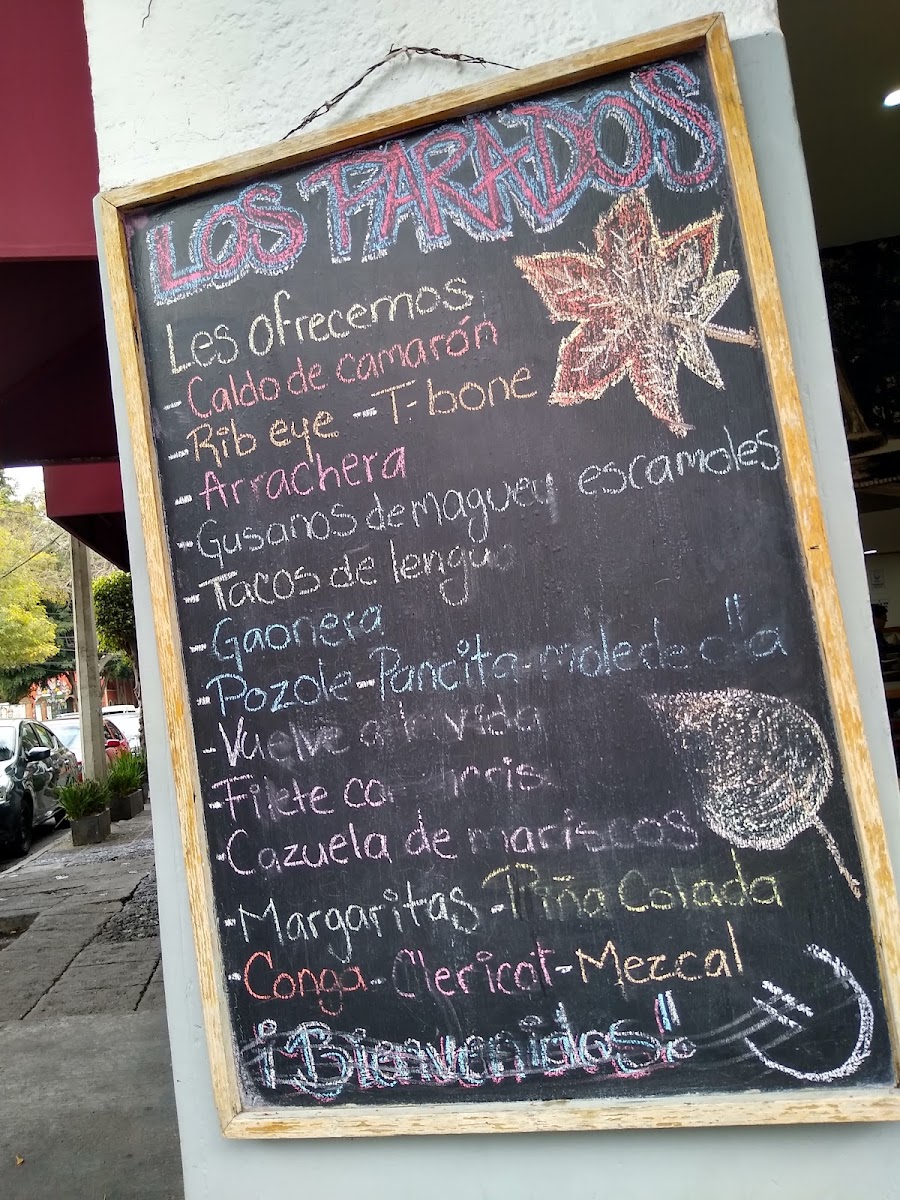 LOS PARADOS
Les ofrecemos
- Caldo de camarón
- Rib eye - T-bone
- Arrachera
- Gusanos de maguey escamoles
- Tacos de lengua
- Gaonera
- Pozole - Pancita - mole de olla
- Vuelve a la vida
- Filete
- Cazuela de mariscos
- Margaritas - Piña Colada
- Conga - Clericot - Mezcal
¡Bienvenidos!